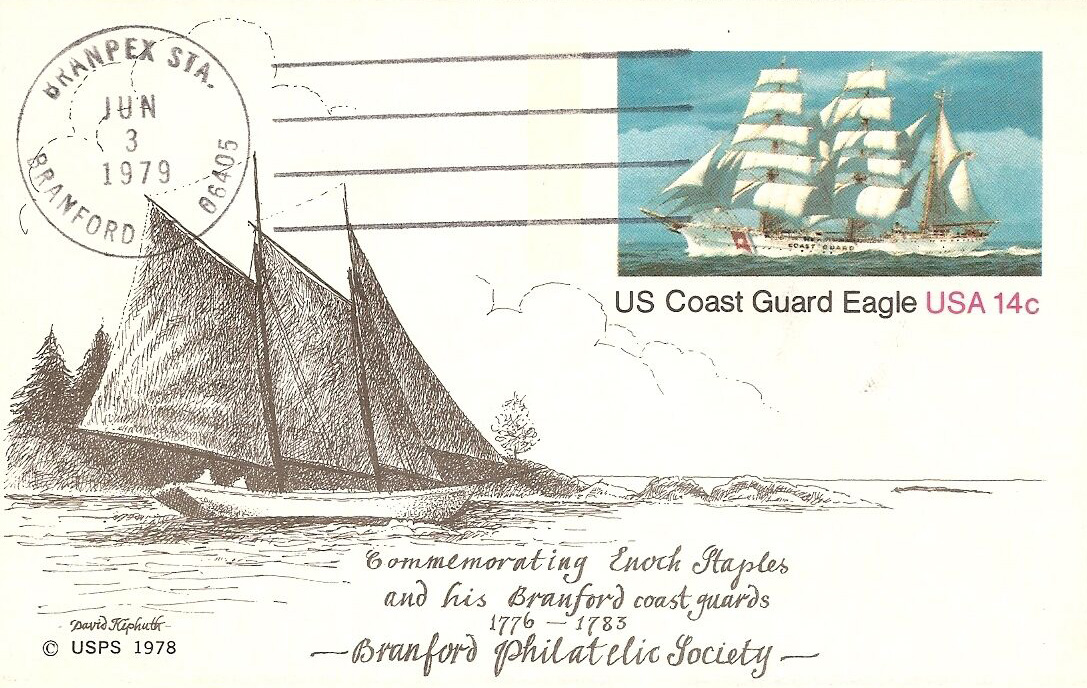 BRANPEX STA.
JUN
3
1979
BRANFORD 06405
COAST GUARD
US Coast Guard Eagle USA 14c
Commemorating Enoch Staples
and his Branford coast guards
1776 – 1783
— Branford Philatelic Society —
- David Kiphuth -
© USPS 1978